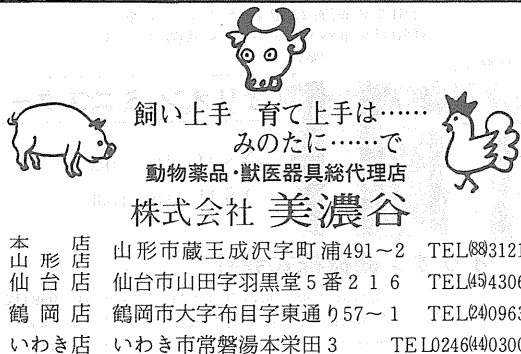 飼い上手 育て上手は……
みのたに……で
動物薬品・獣医器具総代理店
株式会社 美濃谷
本店
山形店 山形市蔵王成沢字町浦491~2 TEL(88)3121
仙台店 仙台市山田字羽黒堂5番216 TEL(45)4306
鶴岡店 鶴岡市大字布目字東通り57~1 TEL(24)0963
いわき店 いわき市常磐湯本栄田3 TEL0246(44)0300